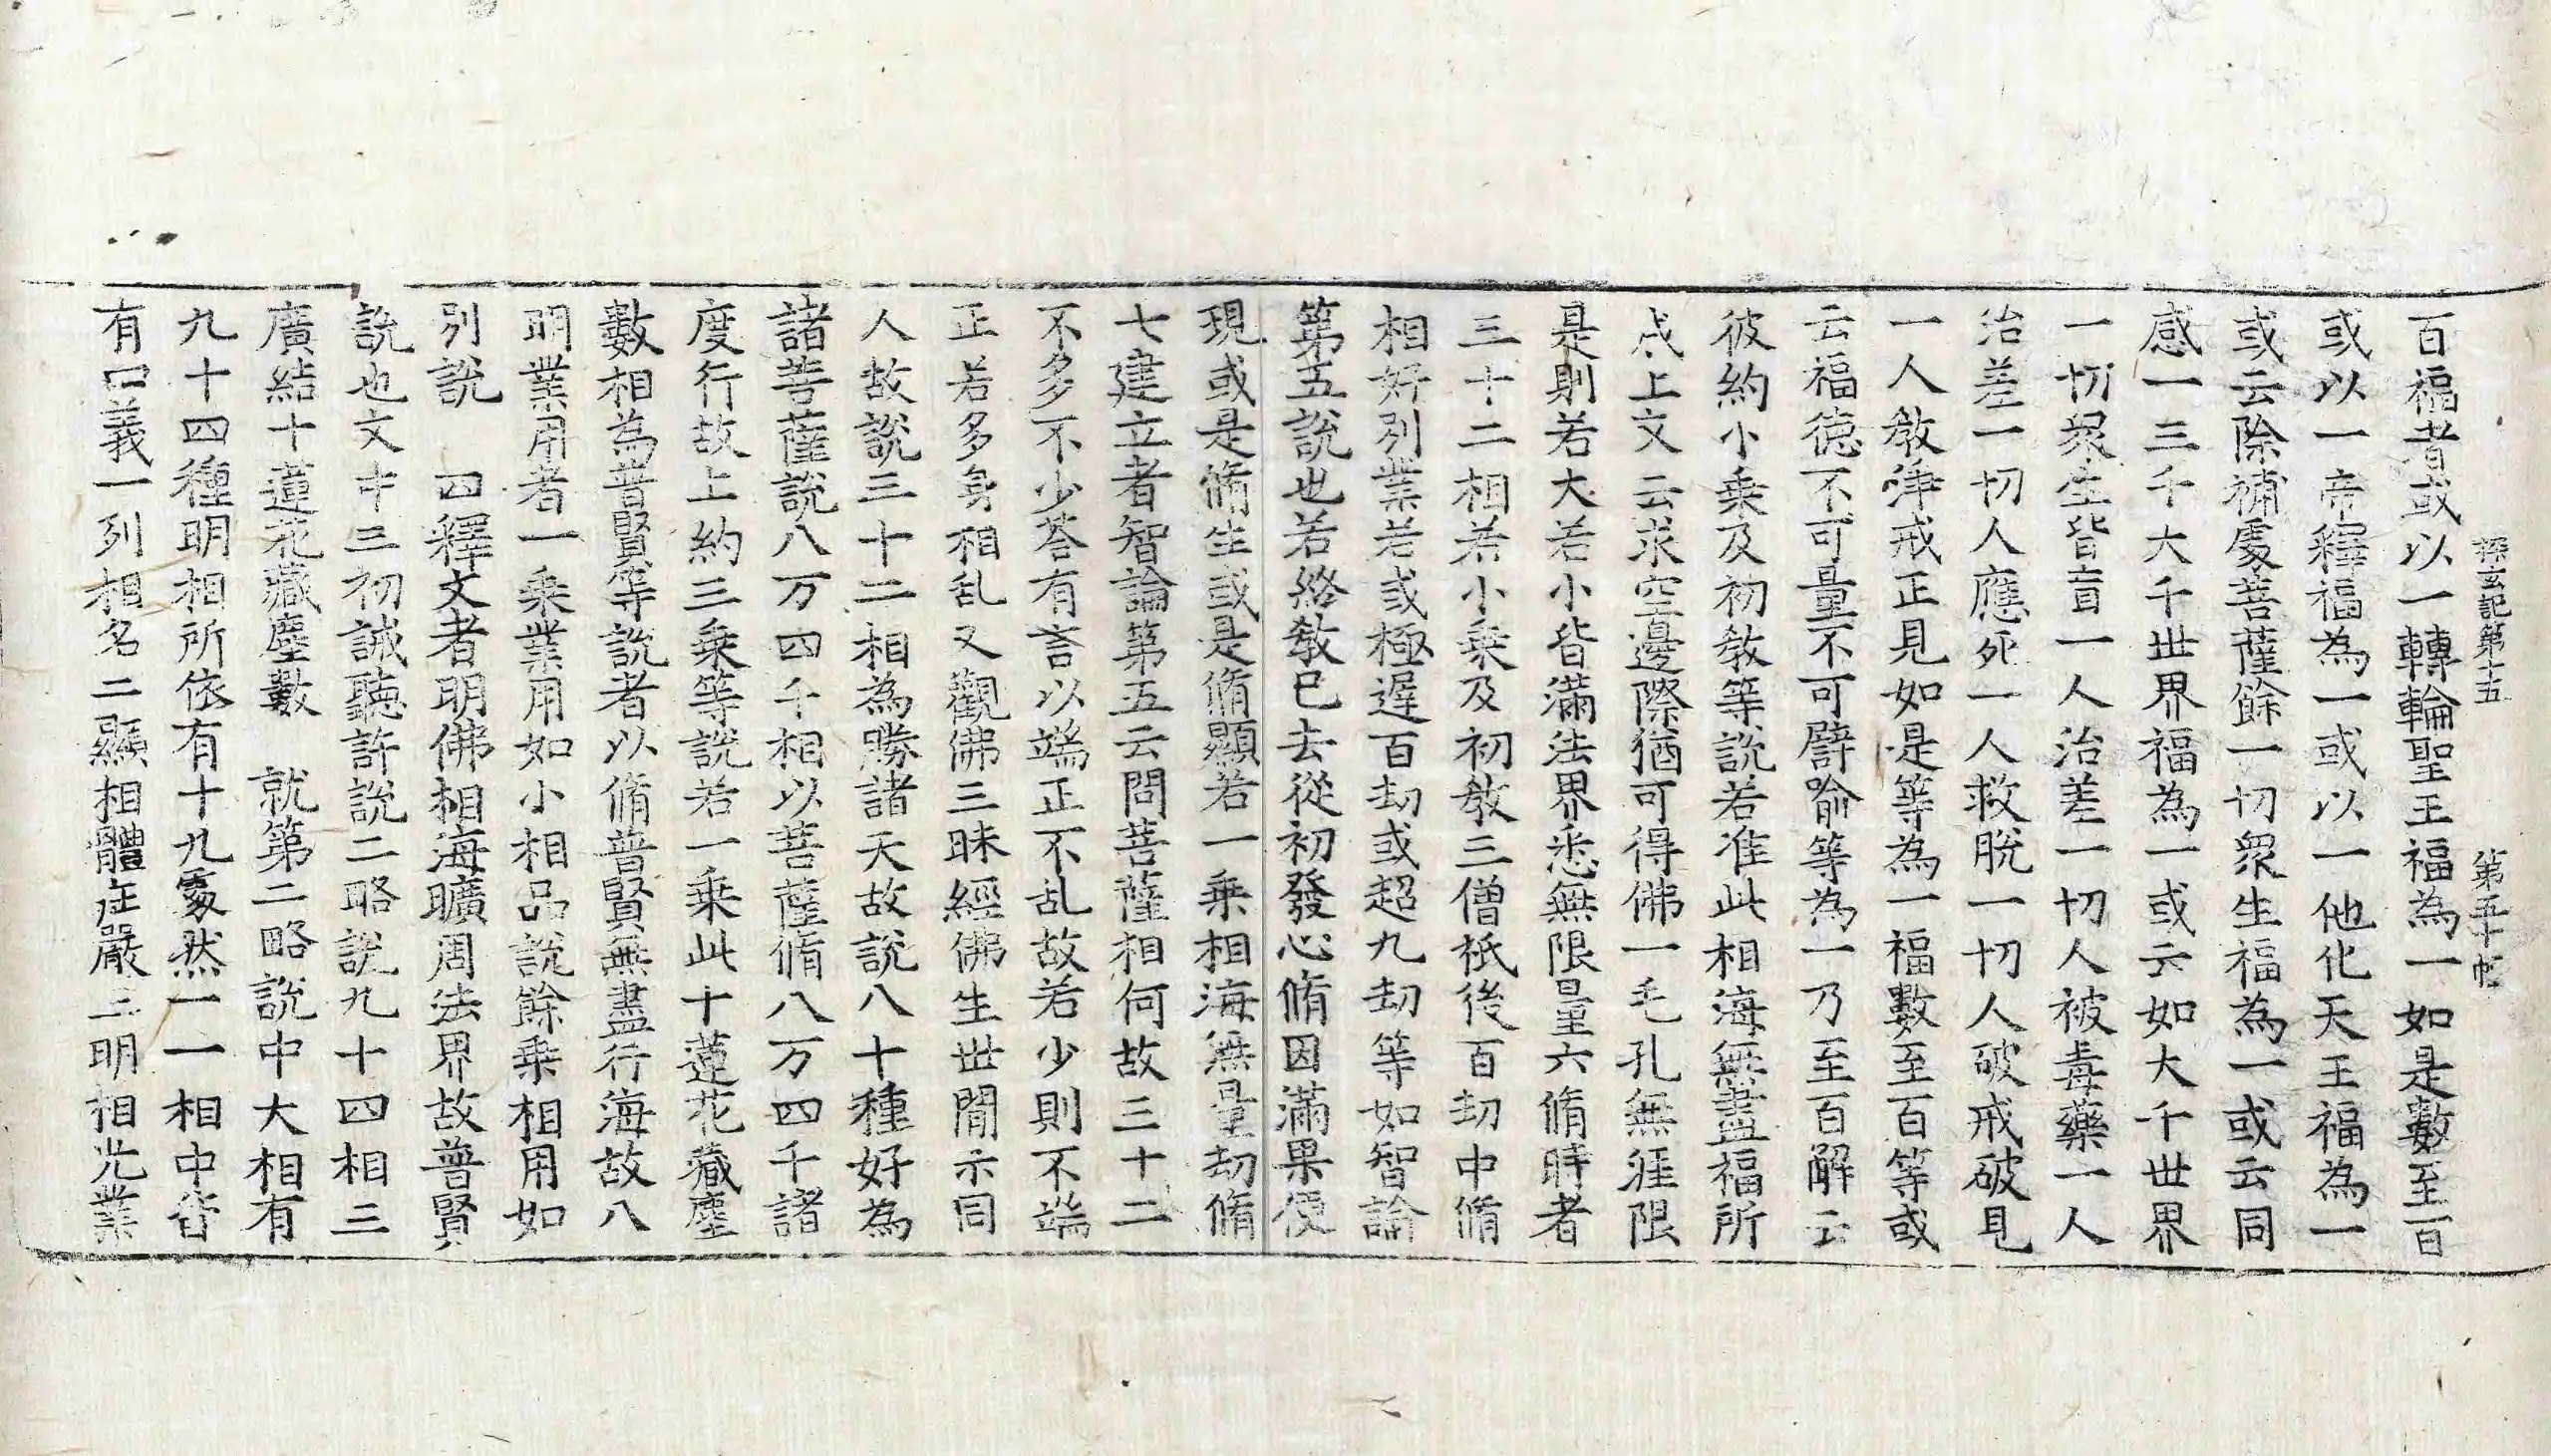 探玄記第十五 第五十帖
百福者或以一轉輪聖王福為一如是數至百
或以一帝釋福為一或以一他化天王福為一
或云除補處菩薩餘一切衆生福為一或云同
感一三千大千世界福為一或云如大千世界
一切衆生皆盲一人治差一切人被毒藥一人
治差一切人應死一人救脫一切人破戒破見
一人教淨戒正見如是等為一福數至百等或
云福德不可量不可譬喻等為一乃至百解云
彼約小乘及初教等說若准此相海無盡福所
成上文云求空邊際猶可得佛一毛孔無涯限
是則若大若小皆滿法界悉無限量六脩時者
三十二相若小乘及初教三僧祇後百劫中脩
相好別業若或極遲百劫或超九劫等如智論
第五說也若終教已去從初發心脩因滿果便
現或是脩生或是脩顯若一乘相海無量劫脩
七建立者智論第五云問菩薩相何故三十二
不多不少荅有言以端正不乱故若少則不端
正若多身相乱又觀佛三昧經佛生世閒示同
人故說三十二相為勝諸天故說八十種好為
諸菩薩說八万四千相以菩薩脩八万四千諸
度行故上約三乘等說若一乘此十蓮花藏塵
數相為普賢等說者以脩普賢無盡行海故八
明業用者一乘業用如小相品說餘乘相用如
別說 四釋文者明佛相海曠周法界故普賢
說也文中三初誡聽許說二略說九十四相三
廣結十蓮花藏塵數 就第二略說中大相有
九十四種明相所依有十九處然一一相中皆
有四義一列相名二顯相體莊嚴三明相光業